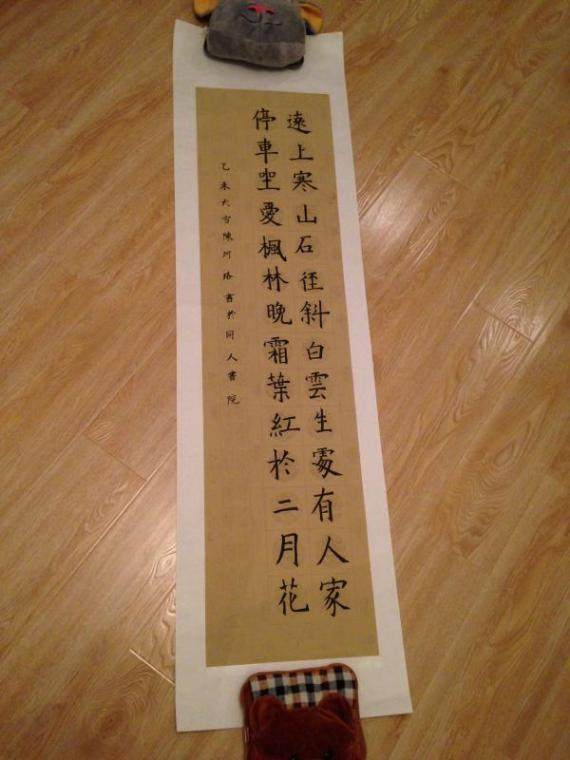 遠上寒山石徑斜白雲生處有人家
停車坐愛楓林晚霜葉紅於二月花
乙未大雪陳河洛書於同人書院